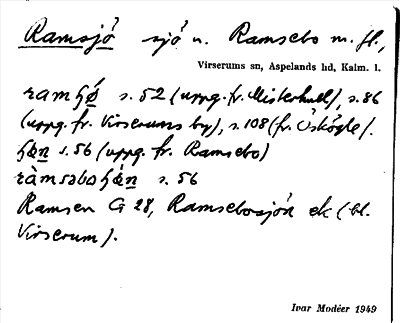 Ramsjö sjö n. Ramsebo m. fl.,
Virserums sn, Aspelands hd, Kalm. l.
s. 52 (uppg. fr. Misterhult), s. 86
(uppg. fr. Virserums by), s. 108 (fr. Öskögle).
s. 56 (uppg. fr. Ramsebo)
s. 56
Ramsen G 28, Ramsebosjön ek (bl.
Virserum).
Ivar Modéer 1949